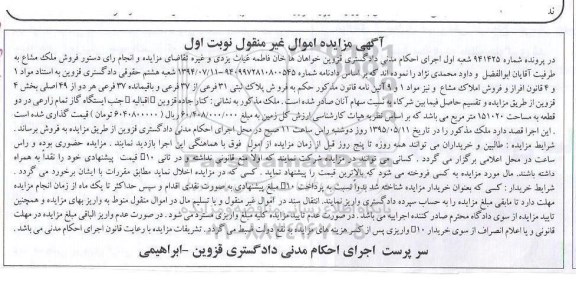 آگهی مزایده اموال غیر منقول نوبت اول
در پرونده شماره ۹۴۱۴۲۵ شعبه اول اجرای احکام مدنی دادگستری قزوین خواهان ها خان فاطمه غیاث یزدی و غیره تقاضای مزایده و انجام رای دستور فروش ملک مشاع به
طرفیت آقایان ابوالفضل و داود محمدی نژاد را نموده اند که بر اساس دادنامه شماره ۹۴۰۹۹۷۲۸۱۰۸۰۰۵۴۵-۱۳۹۴/۰۷/۱۱ شعبه هشتم حقوقی دادگستری قزوین به استناد مواد ۱
و ۴ قانون افراز و فروش املاک مشاع و نیز مواد ۱ و ۹ آئین نامه قانون مذکور حکم به فروش پلاک ثبتی ۳۱ فرعی از ۳۷ فرعی و باقیمانده ۳۷ فرعی هر دو از ۴۹ اصلی بخش ۴
قزوین از طریق مزایده و تقسیم حاصل فیما بین شرکاء به نسبت سهام آنان صادر شده است . ملک مذکور به نشانی : کنار جاده قزوین اقبالیه جنب ایستگاه گاز تمام زارعی در دو
قطعه به مساحت ۱۵۱۰۲۰ متر مربع می باشد که بر اساس نظریه هیات کارشناسی ارزش کل زمین به مبلغ ۶۰/۴۰۸/۰۰۰/۰۰۰ ریال ( ۶۰۴۰۸۰۰۰۰۰ تومان ) قیمت گذاری شده است
. این اجرا قصد دارد ملک مذکور را در تاریخ ۱۳۹۵/۰۵/۱۱ روز دوشنبه راس ساعت ۱۱ صبح در محل اجرای احکام مدنی دادگستری قزوین از طریق مزایده به فروش برساند .
شرایط مزایده : طالبین و خریداران می توانند همه روزه تا پنج روز قبل از زمان مزایده از اموال فوق با هماهنگی این اجرا بازدید نمایند . مزایده حضوری بوده و راس
ساعت در محل اعلامی برگزار می گردد . کسانی می توانند در مزایده شرکت نمایند که اولا منع قانونی نداشته و در ثانی ۱۰ قیمت پیشنهادی خود را نقداً به همراه
داشته باشند. مال مورد مزایده به کسی فروخته می شود که بالاترین قیمت را پیشنهاد نماید . کسی که در مزایده اخلال نماید مطابق مقررات با ایشان برخورد می گردد .
شرایط خریدار : کسی که بعنوان خریدار مزایده شناخته شد بدواً نسبت به پرداخت ۱۰ مبلغ پیشنهادی به صورت نقدی اقدام و سپس حداکثر تا یک ماه از زمان انجام مزایده
مهلت دارد تا مابقی مبلغ مزایده را به حساب سپرده دادگستری واریز نمایند. انتقال سند در اموال غیر منقول و یا تسلیم مال در اموال منقول منوط به واریز بهای مزایده و همچنین
تایید مزایده از سوی دادگاه محترم صادر کننده اجراییه می باشد. در صورت عدم تایید مزایده کلیه مبلغ واریزی مسترد می شود . در صورت عدم واریز الباقی مبلغ مزایده در مهلت
قانونی و یا اعلام انصراف از سوی خریدار ۱۰ واریزی پس از کسر هزینه های مزایده به نفع دولت ضبط می گردد . تشریفات مزایده با رعایت قانون اجرای احکام مدنی می باشد .
سر پرست اجرای احکام مدنی دادگستری قزوین -ابراهیمی